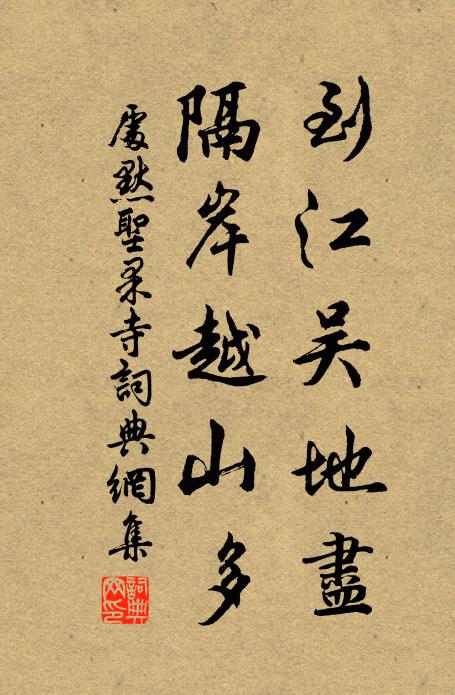 到江吴地盡
隔岸越山多
處默聖果寺詞典網集
詞典网印